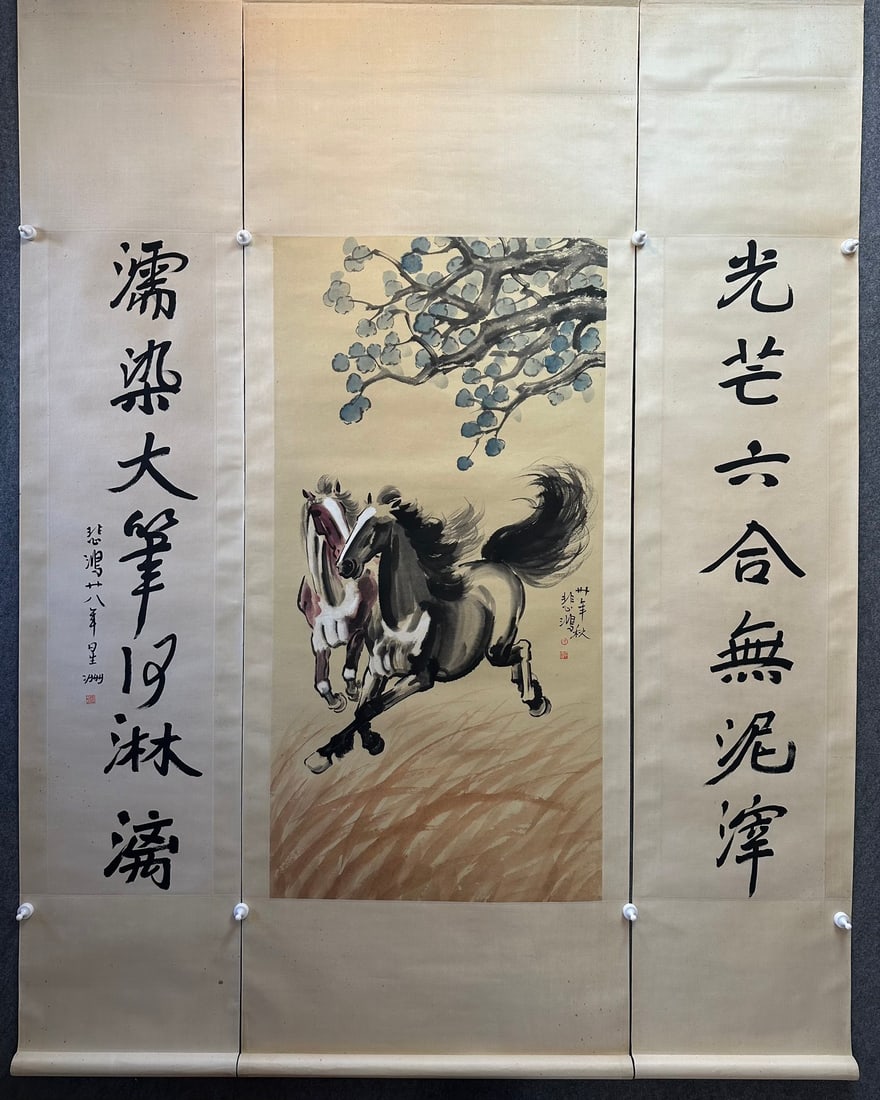 光芒六合無泥滓
卅年秋
悲鴻
濡染大筆何淋漓
悲鴻廿八年星洲